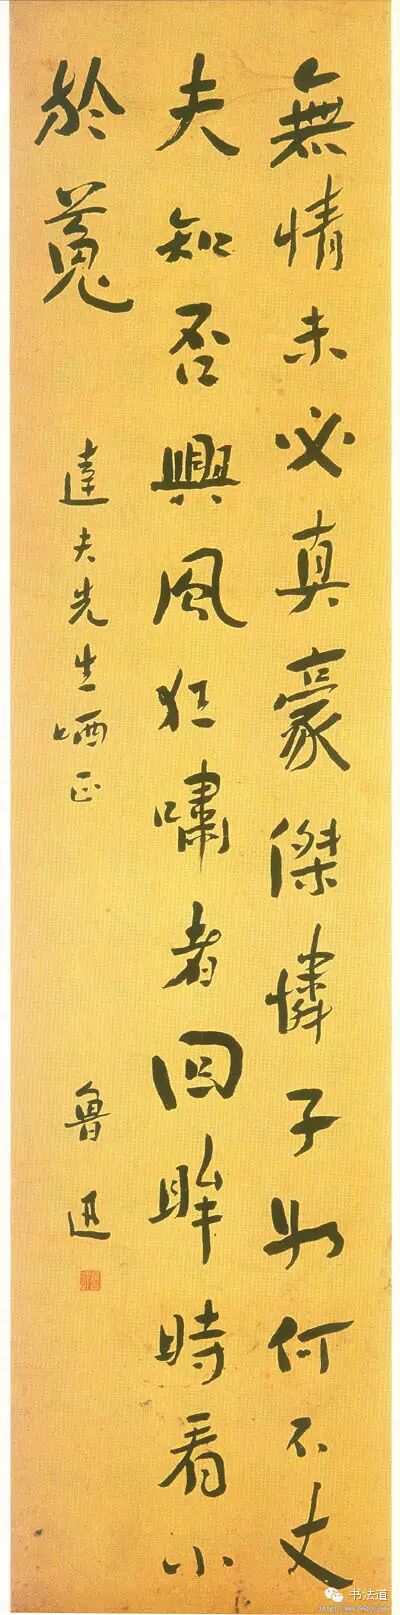 無情未必真豪傑憐子如何不丈
夫知否興風狂嘯者回眸時看小
於菟
達夫先生哂正
魯迅
书法道